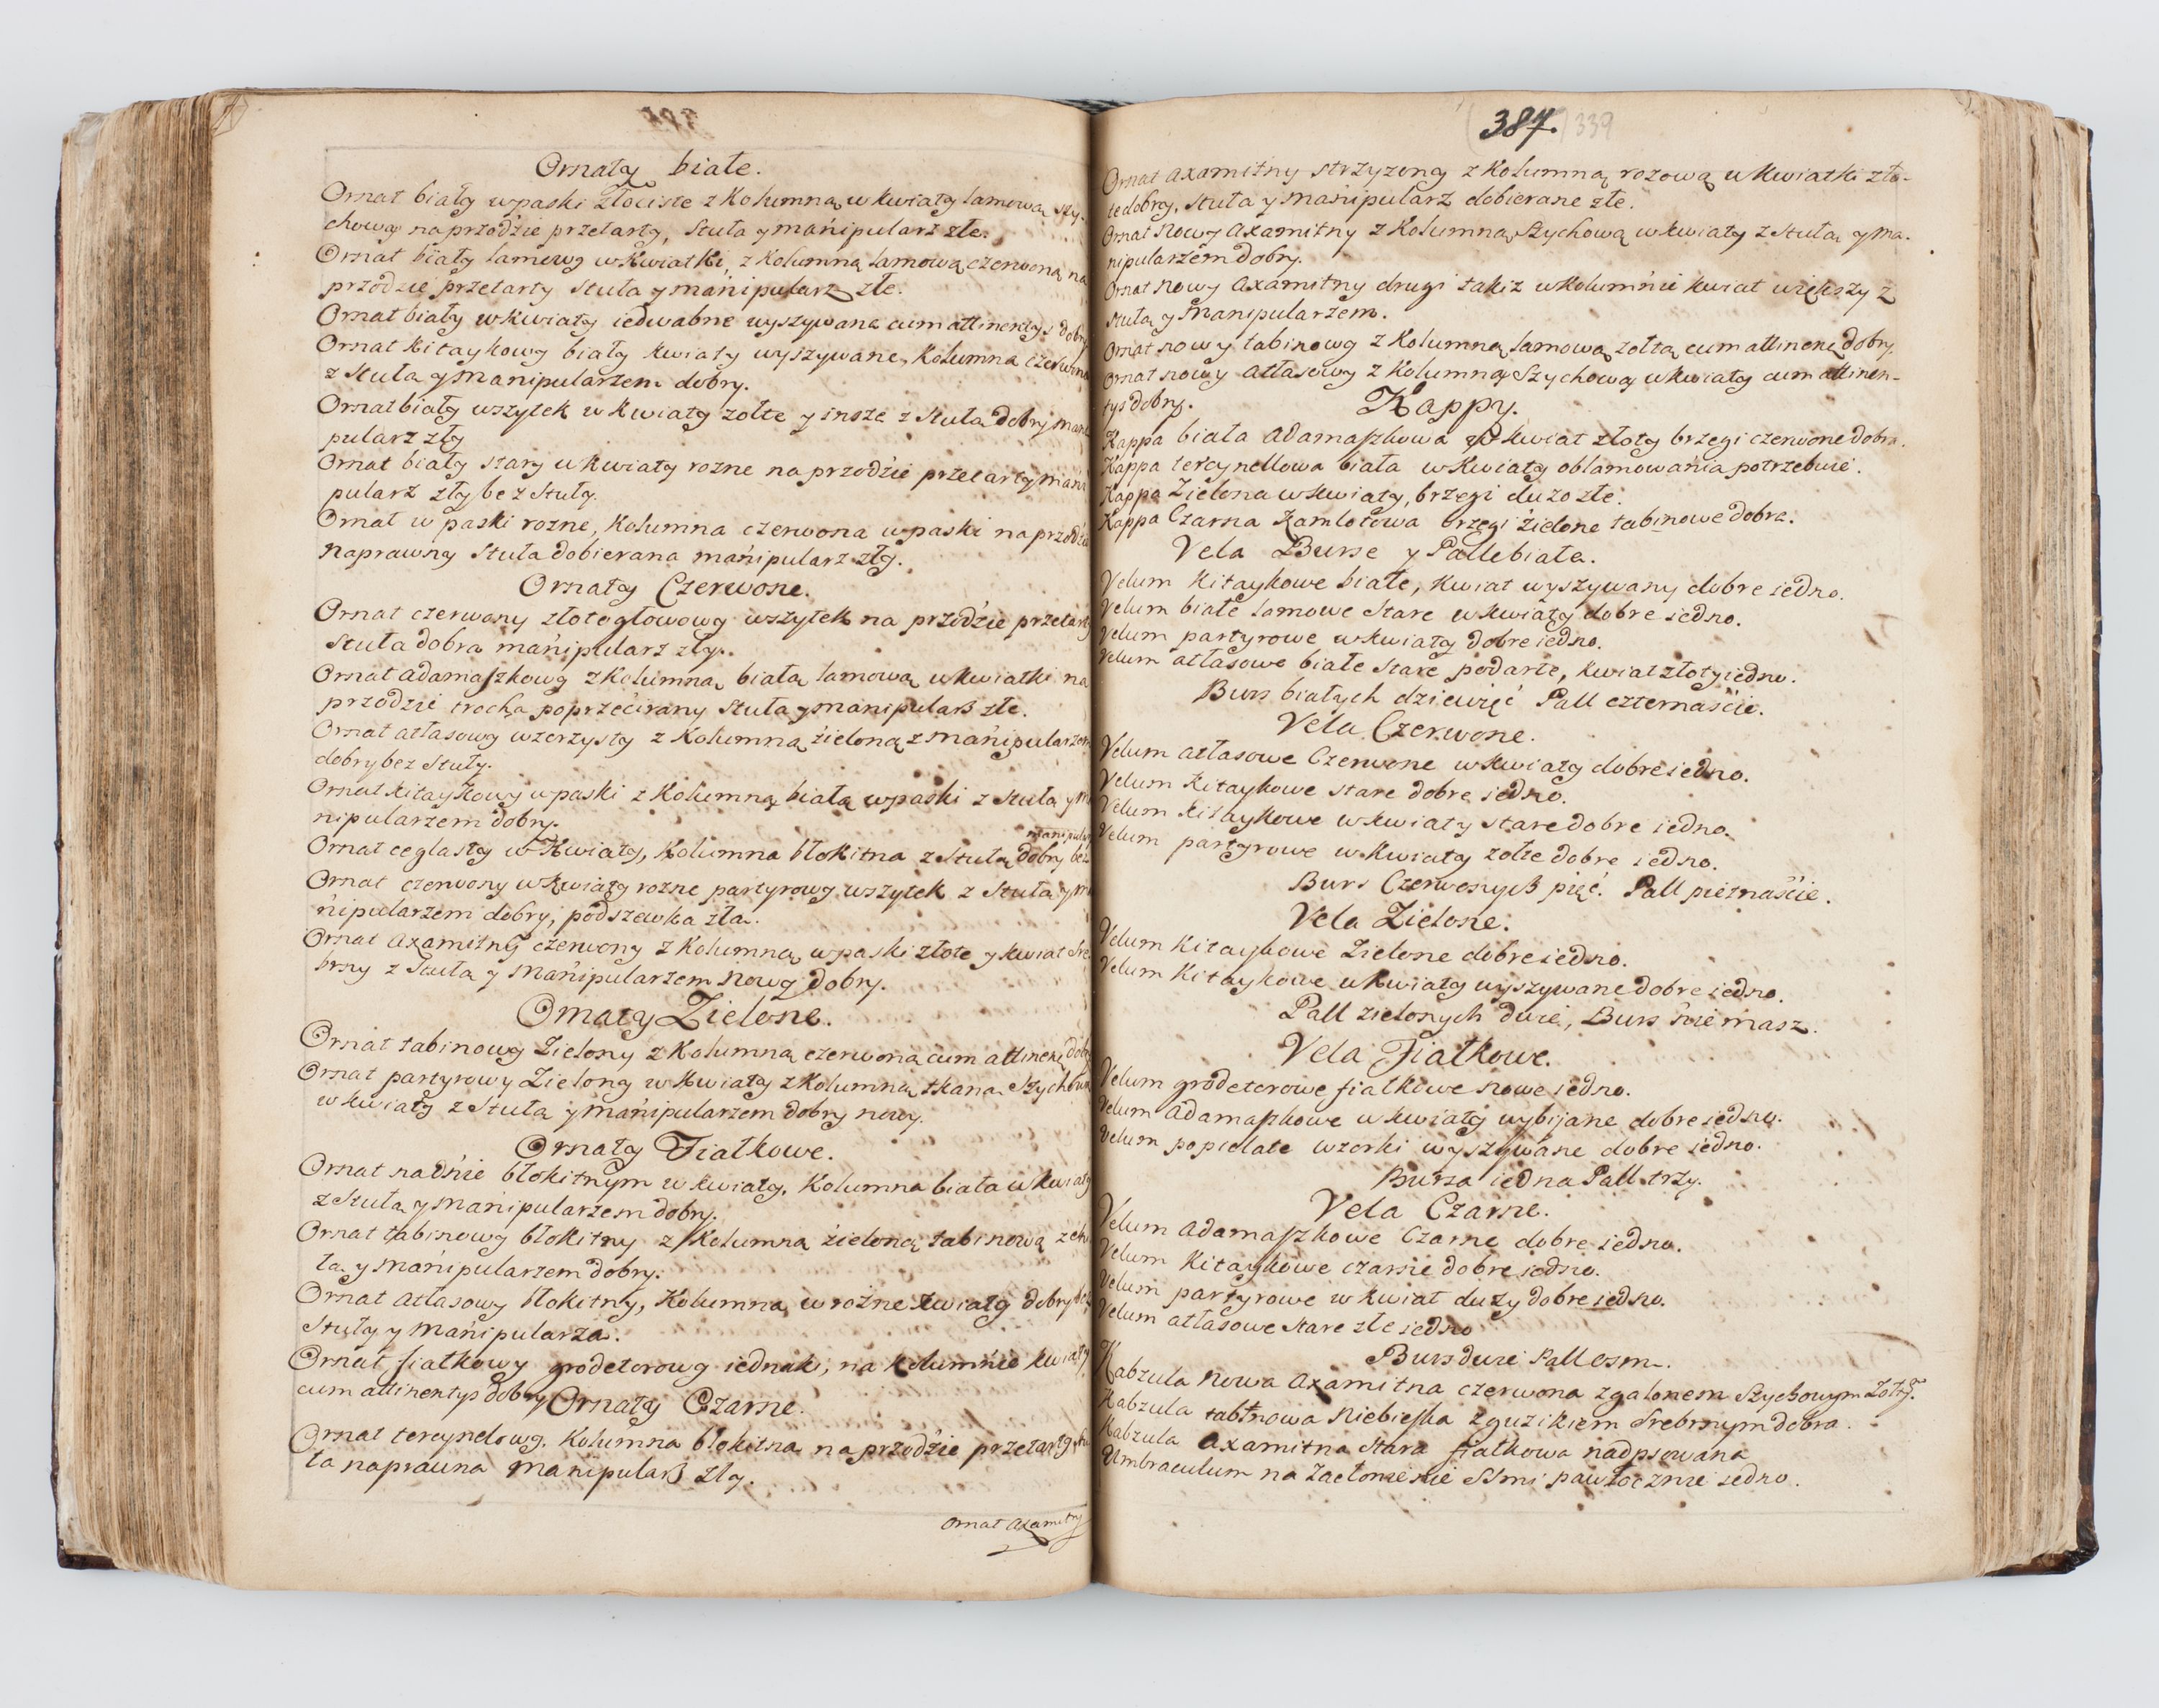 Ornaty białe.
Ornat biały w paski złociste z Kolumną w kwiaty lamową szy-
chową na przodźie przetarty, Stuła y mańipularz złe.
Ornat biały lamowy w Kwiatki, z Kolumną lamową czerwoną na
przodzie przetarty Stuła y mańipularz złe.
Ornat biały w kwiaty iedwabne wyszywane cum attinentys dobry
Ornat Kitaykowy biały kwiaty wyszywane, Kolumna czerwona
z Stułą y Manipularzem dobry.
Ornat biały wszytek w kwiaty zołte y insze z Stułą dobry mani
pularz zły
Ornat biały stary w kwiaty rozne na przodźie przetarty mani
pularz zły bez Stuły.
Ornat w paski rozne, Kolumna czerwona w paski na przodźie
naprawny Stuła dobierana mańipularz zły.
Ornaty Czerwone.
Ornat czerwony złotogłowowy wszytek na przodźie przetarty
Stuła dobra mańipularz zły.
Ornat adamaszkowy z Kolumną białą lamową w kwiatki na
przodzie trochą poprzećirany Stuła y manipularz złe.
Ornat atłasowy wzorzysty z Kolumną źieloną z mańipularzem
dobry bez Stuły.
Ornat kitaykowy w paski z Kolumną białą w paski z Stułą y ma
nipularzem dobry.
manipularz
Ornat ceglasty w Kwiaty, Kolumna błokitna z Stułą dobry bez
Ornat czerwony w Kwiaty rozne partyrowy wszytek z Stułą y ma
ńipularzem dobry, podszewka zła.
Ornat Axamitny czerwony z Kolumną w paski złote y kwiat sre
brny z Stułą y Mańipularzem nowy dobry.
Ornaty Zielone.
Ornat tabinowy Zielony z Kolumną czerwoną cum attinen: dobry
Ornat partyrowy Zielony w Kwiaty z Kolumną tkaną Szychową
w kwiaty z Stułą y mańipularzem dobry nowy.
Ornaty Fiałkowe.
Ornat na dńie błokitnym w kwiaty, Kolumna biała w kwiaty
z Stułą y Manipularzem dobry.
Ornat tabinowy błokitny z Kolumną źieloną tabinową z stu
łą y Mańipularzem dobry.
Ornat Atłasowy błokitny, Kolumna w rożne kwiaty dobry bez
Stuły y Mańipularza.
Ornat fiałkowy grodetorowy iednak, na kolumńie kwiaty
cum attinentys dobry Ornaty Czarne.
Ornat tercynelowy, Kolumna błokitna na przodźie przetarty stu
ła naprawna Manipularz zły.
Ornat Axamitny
387. 339
Ornat axamitny strzyzony z Kolumną rozową w kwiatki zło-
te dobry, Stuła y Mańipularz dobierane złe.
Ornat Nowy Axamitny z Kolumną Szychową w kwiaty z Stułą y ma-
nipularzem dobry.
Ornat Nowy Axamitny drugi takiz w Kolumńie kwiat większy z
Stułą y Manipularzem.
Ornat nowy tabinowy z Kolumną lamową zołtą cum attinen: dobry.
Ornat nowy Atłasowy z Kolumną Szychową w kwiaty cum attinen-
tys dobry.
Kappy.
Kappa biała Adamaszkowa w kwiat złoty brzegi czerwone dobra.
Kappa tercynellowa biała w kwiaty oblamowańia potrzebuie.
Kappa Zielona w kwiaty, brzegi duzo złe.
Kappa Czarna Kamlotowa brzegi źielone tabinowe dobra.
Vela Burse y Palle białe.
Velum Kitaykowe białe, Kwiat wyszywany dobre iedno.
Velum białe lamowe Stare w kwiaty dobre iedno.
Velum partyrowe w kwiaty dobre iedno.
Velum atłasowe białe Stare podarte, kwiat złoty iedno.
Burs białych dziewięć Pall czternaśćie.
Vela Czerwone.
Velum Atłasowe Czerwone w kwiaty dobre iedno.
Velum Kitaykowe stare dobre iedno.
Velum Kitaykowe w kwiaty stare dobre iedno.
Velum partyrowe w kwiaty zołte dobre iedno.
Burs Czerwonych pięć. Pall pietnaśćie.
Vela Zielone.
Velum Kitaykowe Zielone dobre iedno.
Velum Kitaykowe w kwiaty wyszywane dobre iedno.
Pall zielonych dwie, Burs ńie masz.
Vela Fiałkowe.
Velum grodetorowe fiałkowe nowe iedno.
Velum Adamaszkowe w kwiaty wybijane dobre iedno.
Velum popielate wzorki wyszywane dobre iedno.
Bursa iedna Pall trzy.
Vela Czarne.
Velum Adamaszkowe Czarne dobre iedno.
Velum Kitaykowe czarne dobre iedno.
Velum partyrowe w kwiat duzy dobre iedno.
Velum atłasowe Stare złe iedno
Burs dwie Pall osm.
Kabzula Nowa Axamitna czerwona z galonem Szychowym Zołty.
Kabzula tabinowa Niebieska z guzikiem Srebrnym dobra.
Kabzula Axamitna Stara fiałkowa nadpsowana
Umbraculum na Zasłonienie SSmi pawłoczńie iedno.